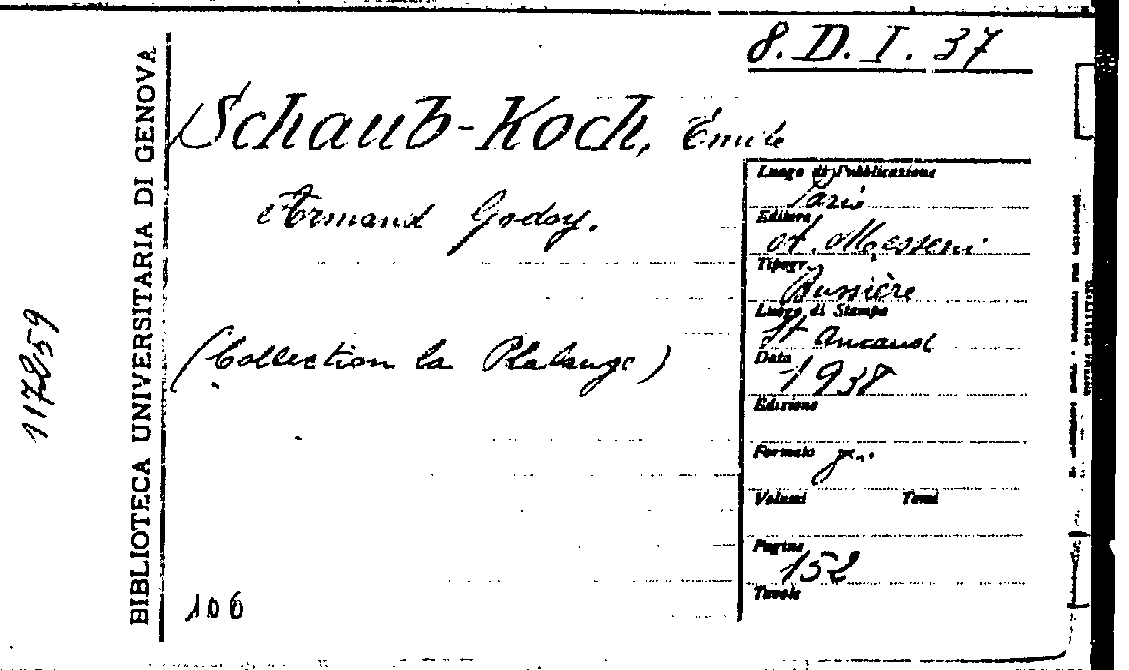 8. D. I. 37
BIBLIOTECA UNIVERSITARIA DI GENOVA
Schaub-Koch, Emile
Armand Godoy.
(Collection la Phalange)
Luogo di Pubblicazione
Paris
Editore
A. Messein
Tipogr.
Bussière
Luogo di Stampa
St Amand
Data
1938
Edizione
Formato
Volumi Tomi
Pagine
152
Tavole
106